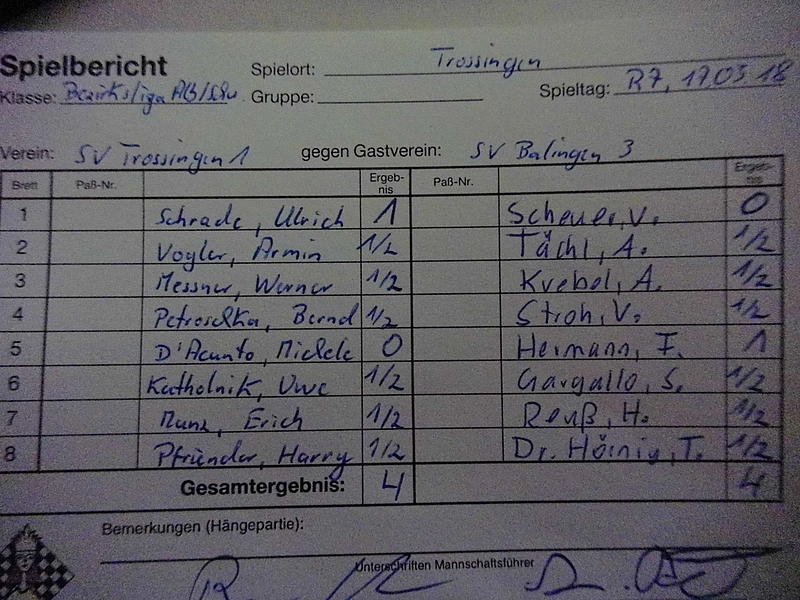 Spielbericht Spielort: Trossingen
Klasse: Bezirksliga Gruppe: Spieltag: R7, 17.03.18
Verein: SV Trossingen 1 gegen Gastverein: SV Balingen 3
Brett Paß-Nr. Ergeb-nis Paß-Nr. Ergeb-nis
1 Schrade, Ulrich 1 Scheuer, V. 0
2 Vogler, Armin 1/2 Tächl, A. 1/2
3 Messner, Werner 1/2 Krebel, A. 1/2
4 Petroschka, Bernd 1/2 Stroh, V. 1/2
5 D'Acunto, Michele 0 Hermann, F. 1
6 Katholnik, Uwe 1/2 Gargallo, S. 1/2
7 Munz, Erich 1/2 Reuß, H. 1/2
8 Pfründer, Harry 1/2 Dr. Hörnig, T. 1/2
Gesamtergebnis: 4 4
Bemerkungen (Hängepartie):
Unterschriften Mannschaftsführer